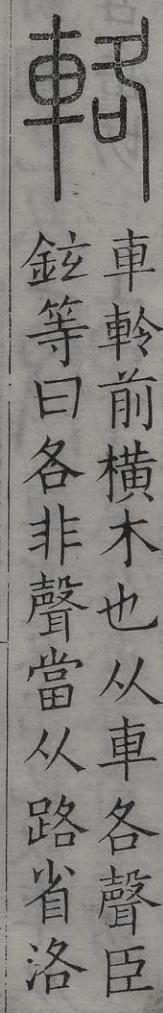 輅
車軨前橫木也从車各聲臣
鉉等曰各非聲當从路省洛